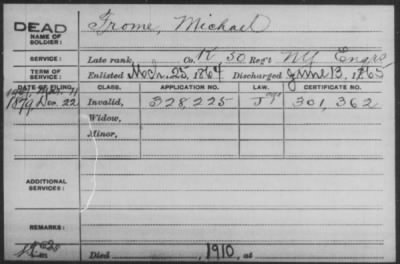 DEAD
NAME OF SOLDIER:
Frome, Michael
SERVICE:
Late rank, Co. K 50 Reg't NY Engrs
TERM OF SERVICE:
Enlisted Mch. 25, 1864 Discharged June 13, 1865
DATE OF FILING. CLASS. APPLICATION NO. LAW. CERTIFICATE NO.
1879 Dec. 22 Invalid, 328,225 301,362
Widow,
Minor,
ADDITIONAL SERVICES:
REMARKS:
Died 1910, at